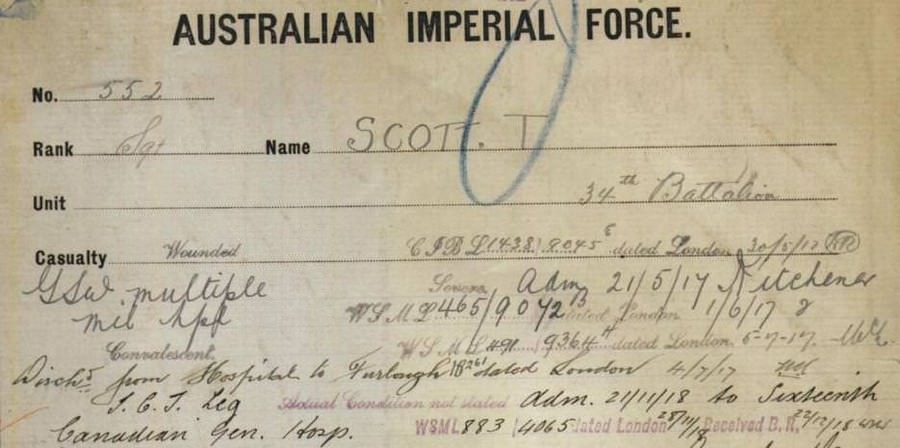 AUSTRALIAN IMPERIAL FORCE.
No. 552
Rank Sgt Name SCOTT. T
Unit 34th Battalion
Casualty Wounded C I B L (438) 8045 E dated London 30/5/17
GSW. multiple Severe Adm 21/5/17 Kitchener
Mil Hpl W S M L 465/9072 B dated London 1/6/17
Convalescent. W S M L 491 9364 H dated London 5-7-17
Dischd from Hospital to Furlough dated London 4/7/17
I.C.T. Leg Actual Condition not stated adm. 21/11/18 to Sixteenth
Canadian Gen. Hosp. WSML 883 4065 dated London Received B.R. 22/12/18